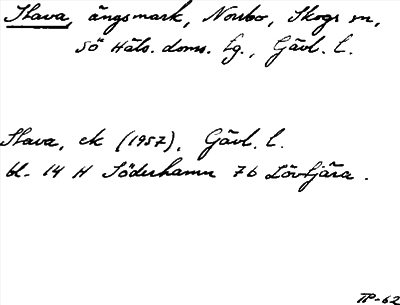 Stava, ängsmark, Norrbo, Skogs sn,
Sö Häls. doms. fg., Gävl. l.
Stava, ek (1957), Gävl. l.
bl. 14 H Söderhamn 7b Lövtjära.
TP-62